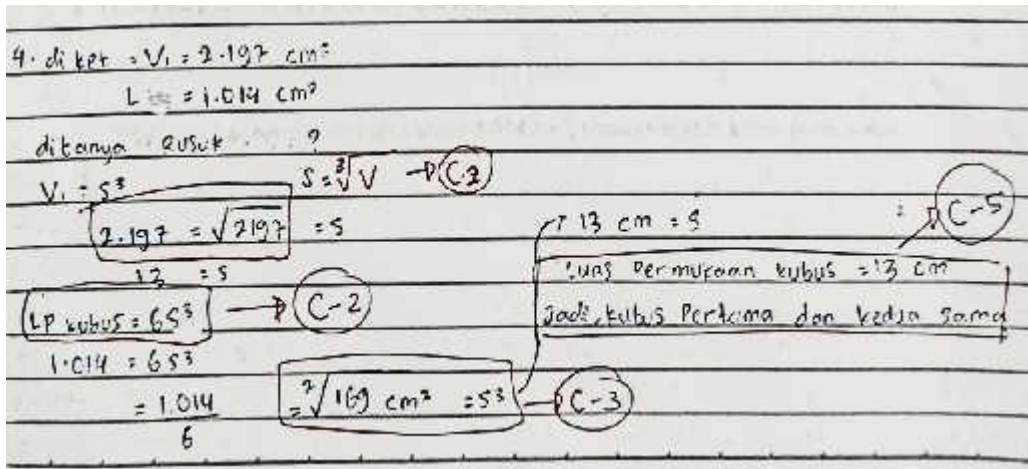 4. diket = V₁ = 2.197 cm³
L = 1.014 cm²
ditanya rusuk ?
V₁ = S³
S = ³√V → C-3
2.197 = √2197 = S
13 = S
LP kubus = 6S³ → C-2
1.014 = 6S³
= 1.014
6
= ²√169 cm² = S³ → C-3
13 cm = S
Luas permukaan kubus = 13 cm → C-5
Jadi, kubus pertama dan kedua sama